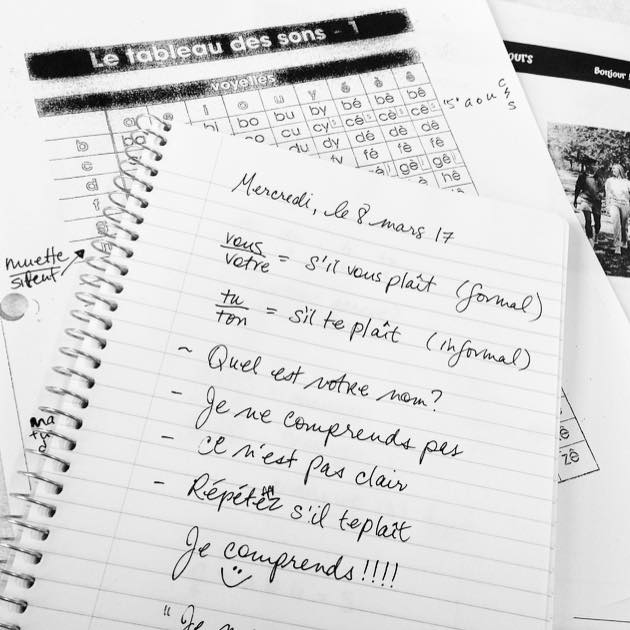 Le tableau des sons - 1
voyelles
a e i o u y é è ê
b bi bo bu by bé bè bê
c co cu cy cé cè cê
d du dy dé dè dê
f fé fè fê
gè gê
hê
"s" a o u
zê
muette
silent
ma
tu
Bonjour
Mercredi, le 8 mars 17
vous
votre = s'il vous plaît (formal)
tu
ton = s'il te plaît (informal)
~ Quel est votre nom?
- Je ne comprends pas
- ce n'est pas clair
- Répétez s'il te plaît
Je comprends!!!!
"Je